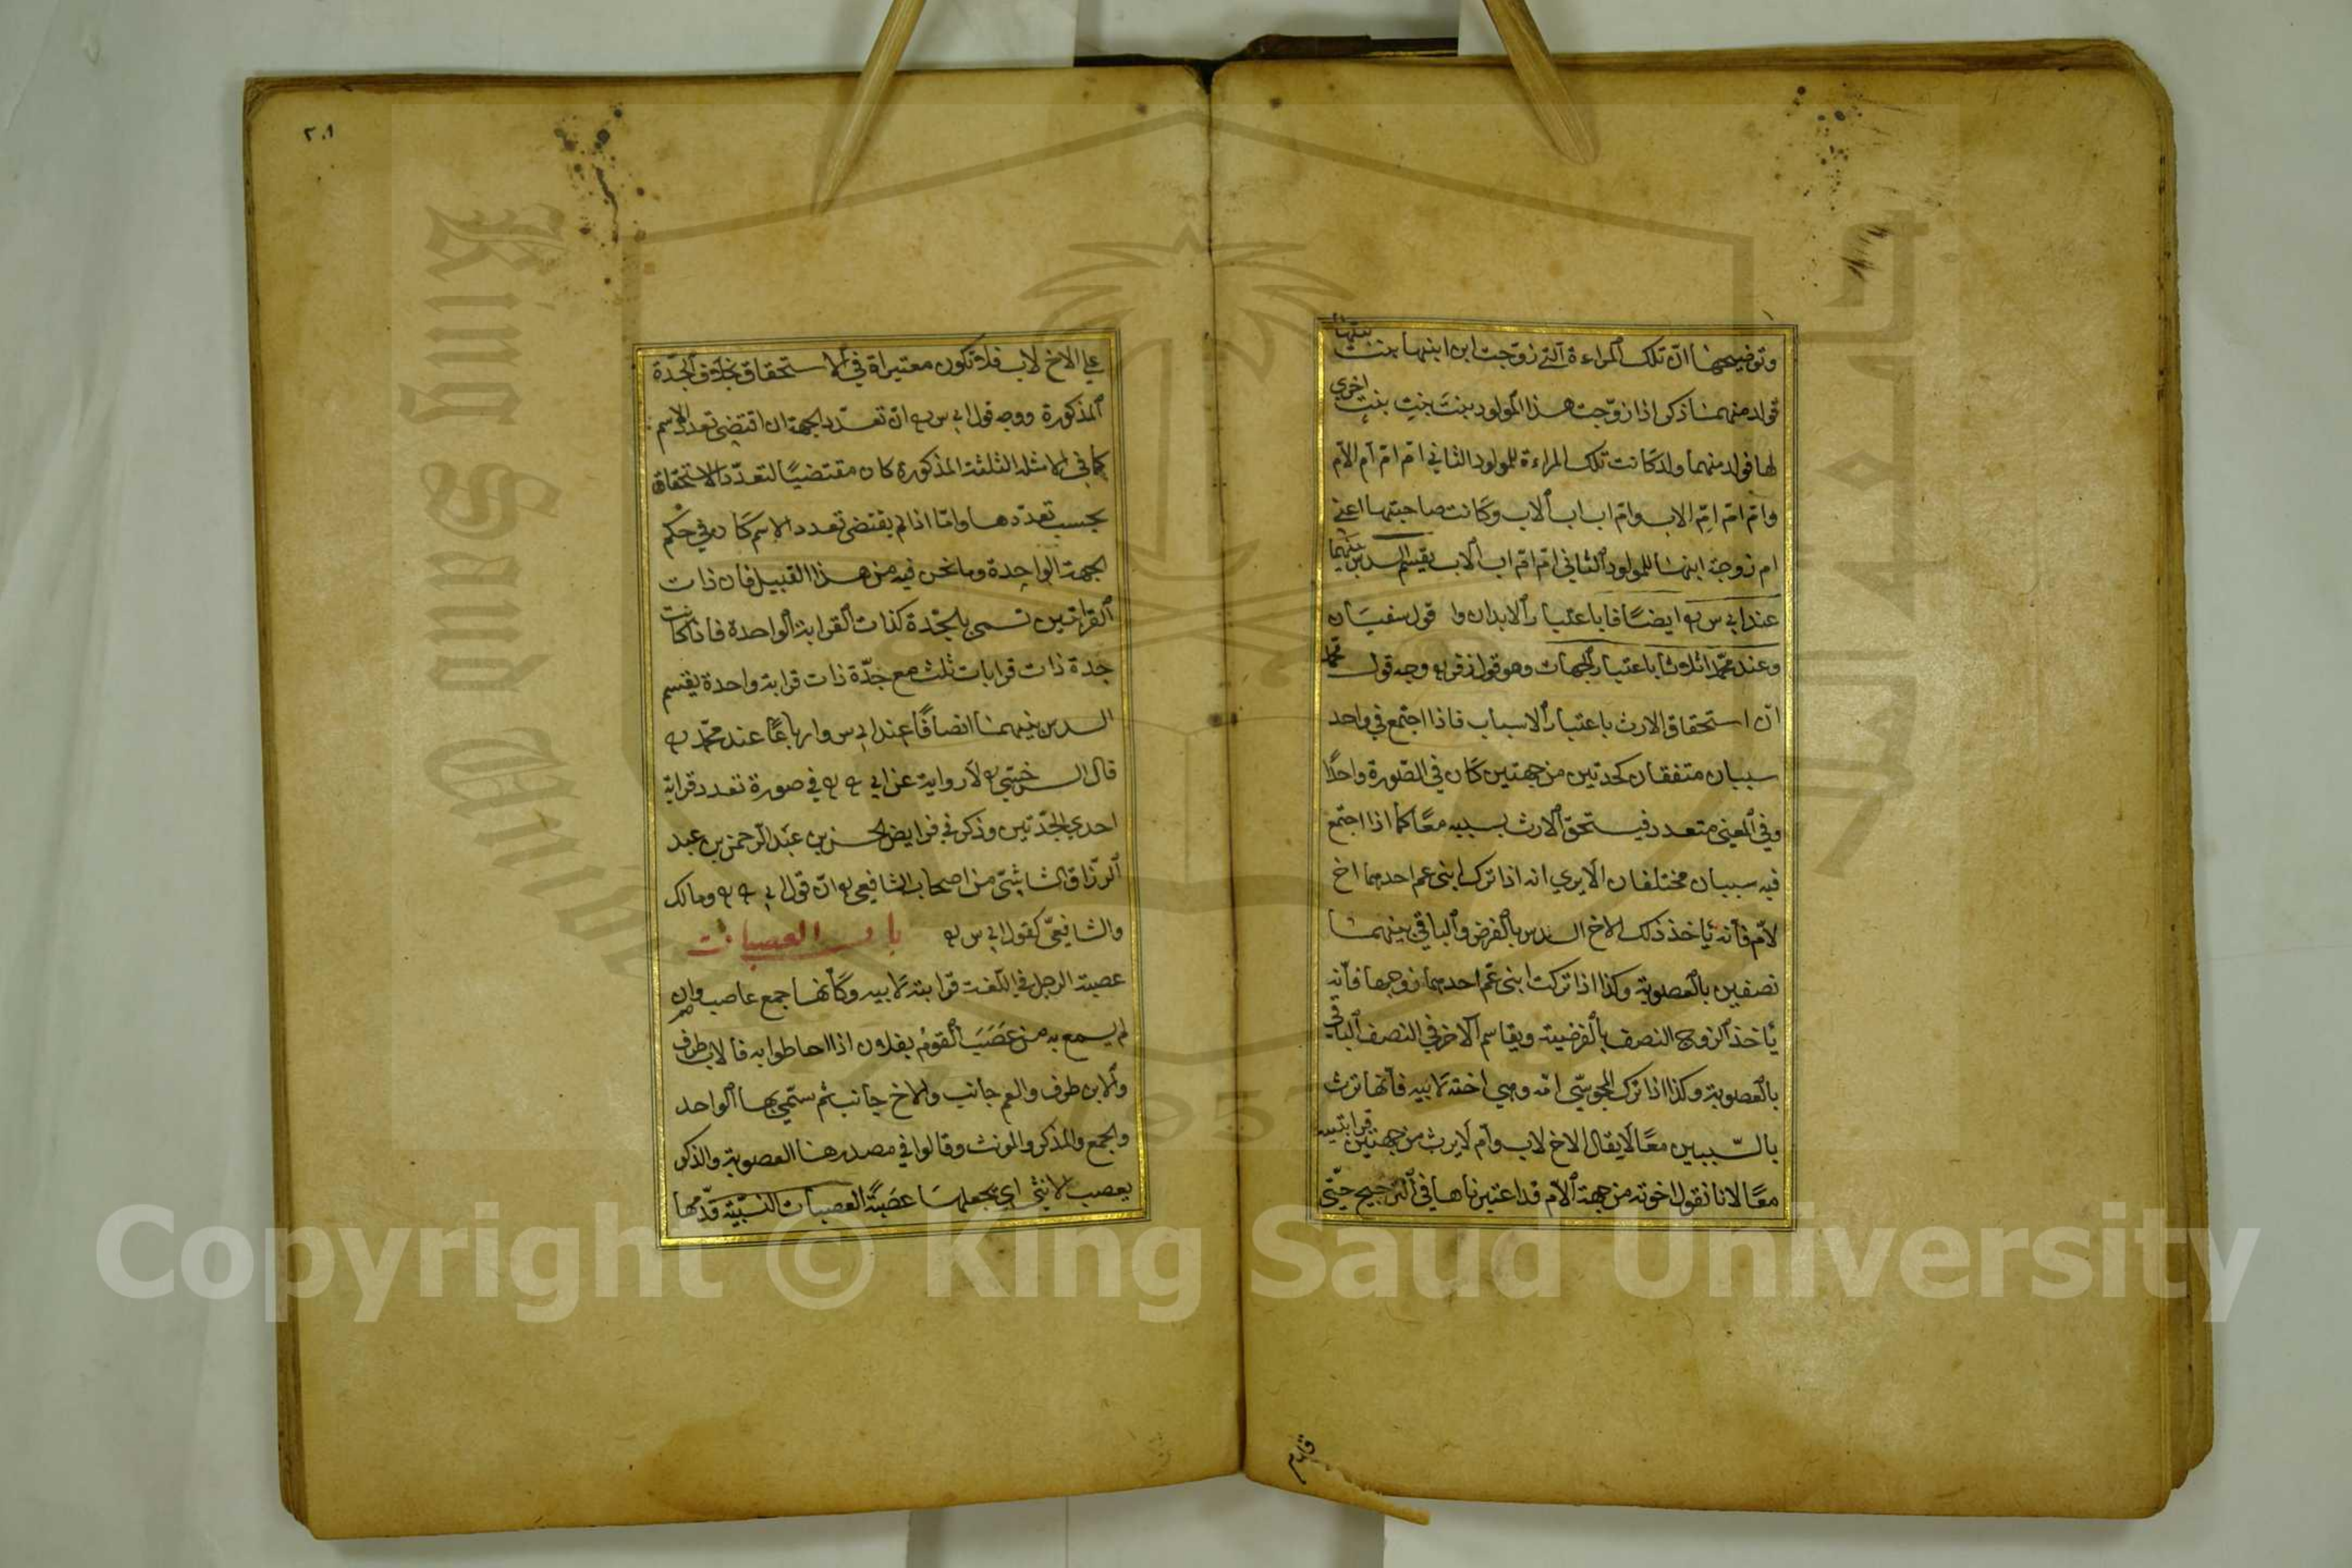 وتوضيحها ان تلك المراءة التي زوجت ابن ابنها بنت بنتها
فولد منهما ذكر اذا زوجت هذا المولود بنت بنت بنت اخرى
لها فولد منهما ولد كانت تلك المراءة للمولود الثاني ام ام ام الام
وام ام ام الاب وام اب اب الاب وكانت صاحبتها اعنى
ام زوجة ابنها للمولود الثاني ام ام اب الاب يقسم السدس بينهما
عند ابي س ره ايضا فا باعتبار الابدان وا قول سفيان
وعند محمد اثلاثا باعتبار الجهات وهو قول زفر ره وجه قول محمد
ان استحقاق الارث باعتبار الاسباب فاذا اجتمع في واحد
سببان متفقان كجدتين من جهتين كان في الصورة واحدا
وفي المعنى متعدد فيستحق الارث بسببيه معا كما اذا اجتمع
فيه سببان مختلفان الا يرى انه اذا ترك ابنى عم احدهما اخ
لام فانه ياخذ ذلك الاخ السدس بالفرض والباقي بينهما
نصفين بالعصوبة وكذا اذا تركت ابنى عم احدهما زوجها فانه
ياخذ الزوج النصف بالفرضية ويقاسم الاخر في النصف الباقي
بالعصوبة وكذا اذا ترك المجوسي امه وهي اخته لابيه فانها ترث
بالسببين معا لا يقال الاخ لاب وام لا يرث من جهتين قرابتيه
معا لانا نقول اخوته من جهة الام قد اعتبرناها في الترجيح حتى
٢٠١
على الاخ لاب فلا تكون معتبرة في الاستحقاق بخلاف الجدة
المذكورة ووجه قول ابي س ره ان تعدد الجهة ان اقتضى تعدد الاسم
كما في الامثلة الثلثة المذكورة كان مقتضيا لتعدد الاستحقاق
بحسب تعددها واما اذا لم يقتضى تعدد الاسم كان في حكم
الجهة الواحدة وما نحن فيه من هذا القبيل فان ذات
القرابتين تسمى بالجدة كذات القرابة الواحدة فاذا كانت
جدة ذات قرابات ثلث مع جدة ذات قرابة واحدة يقسم
السدس بينهما انصافا عند ابي س وارباعا عند محمد ره
قال السرخسي ره لا رواية عن ابي ح ره في صورة تعدد قرابة
احدى الجدتين وذكر في فرايض الحسن بن عبد الرحمن بن عبد
الرزاق الشاشي من اصحاب الشافعي ره ان قول ابي ح ره ومالك
والشافعي كقول ابي س ره باب العصبات
عصبة الرجل في اللغة قرابته لابيه وكانها جمع عاصب وان
لم يسمع به من عصب القوم بفلان اذا احاطوا به فالاب طرف
والابن طرف والعم جانب والاخ جانب ثم سمي بها الواحد
والجمع والمذكر والمونث وقالوا في مصدرها العصوبة والذكر
يعصب الانثى اي يجعلها عصبة العصبات النسبية قدمها
Copyright © King Saud University